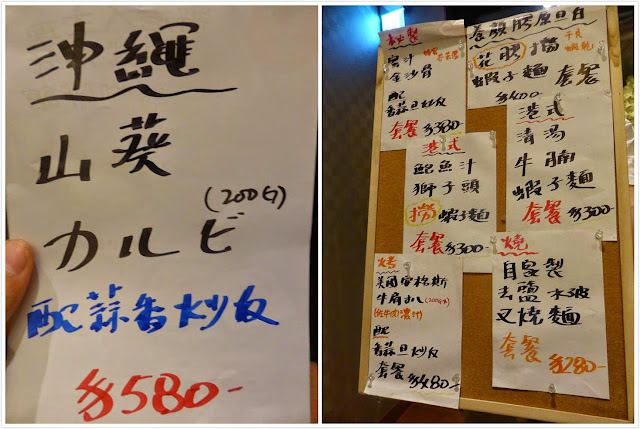 沖繩
山葵
(200G)
カルビ
配蒜香炒飯
$580-
秘製
蜜汁
金沙骨
配
香蒜旦炒飯
套餐 $380
養顏膠原旦白
花膠撈
蝦子麵 套餐
$400-
港式
鮑魚汁
獅子頭
撈 蝦子麵
套餐 $300-
港式
清湯
牛腩
蝦子麵
套餐 $300-
烤
美國安格斯
牛肩小儿(200G)
配
香蒜旦炒飯
套餐 $480-
燒
自家製
去鹽水波
叉燒麵
套餐 $280-